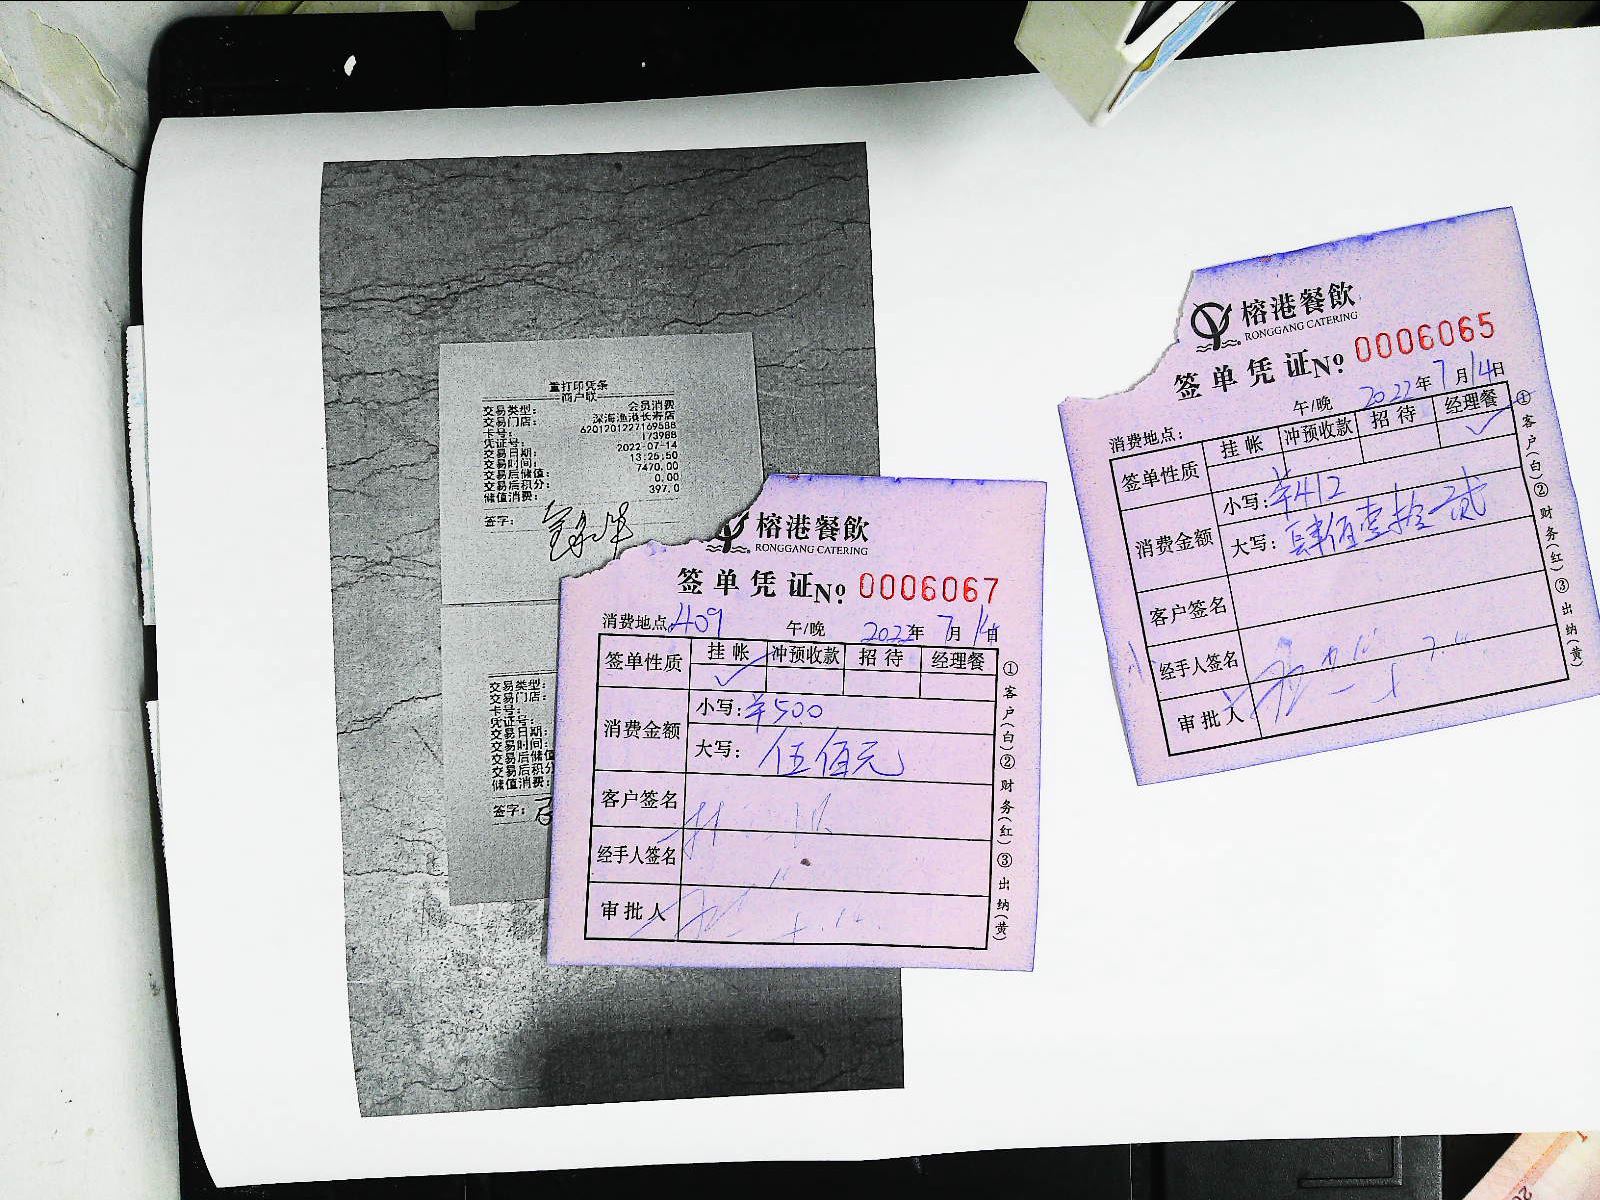 重打印凭条
商户联
交易类型： 会员消费
交易门店： 深海渔港长寿店
卡号： 6201201227169588
凭证号： 173988
交易日期： 2022-07-14
交易时间： 13:25:50
交易后储值： 7470.00
交易后积分： 0.00
储值消费： 397.0
签字：
交易类型：
交易门店：
卡号：
凭证号：
交易日期：
交易时间：
交易后储值
交易后积分
储值消费：
签字：
榕港餐飲
RONGGANG CATERING
签单凭证No 0006067
消费地点 409 午/晚 2022年7月14日
签单性质 挂帐 冲预收款 招待 经理餐
消费金额 小写：¥500
大写：伍佰元
客户签名
经手人签名
审批人
①客户(白)②财务(红)③出纳(黄)
榕港餐飲
RONGGANG CATERING
签单凭证No 0006065
消费地点： 午/晚 2022年7月14日
签单性质 挂帐 冲预收款 招待 经理餐
消费金额 小写：¥412
大写：肆佰壹拾贰
客户签名
经手人签名
审批人
①客户(白)②财务(红)③出纳(黄)